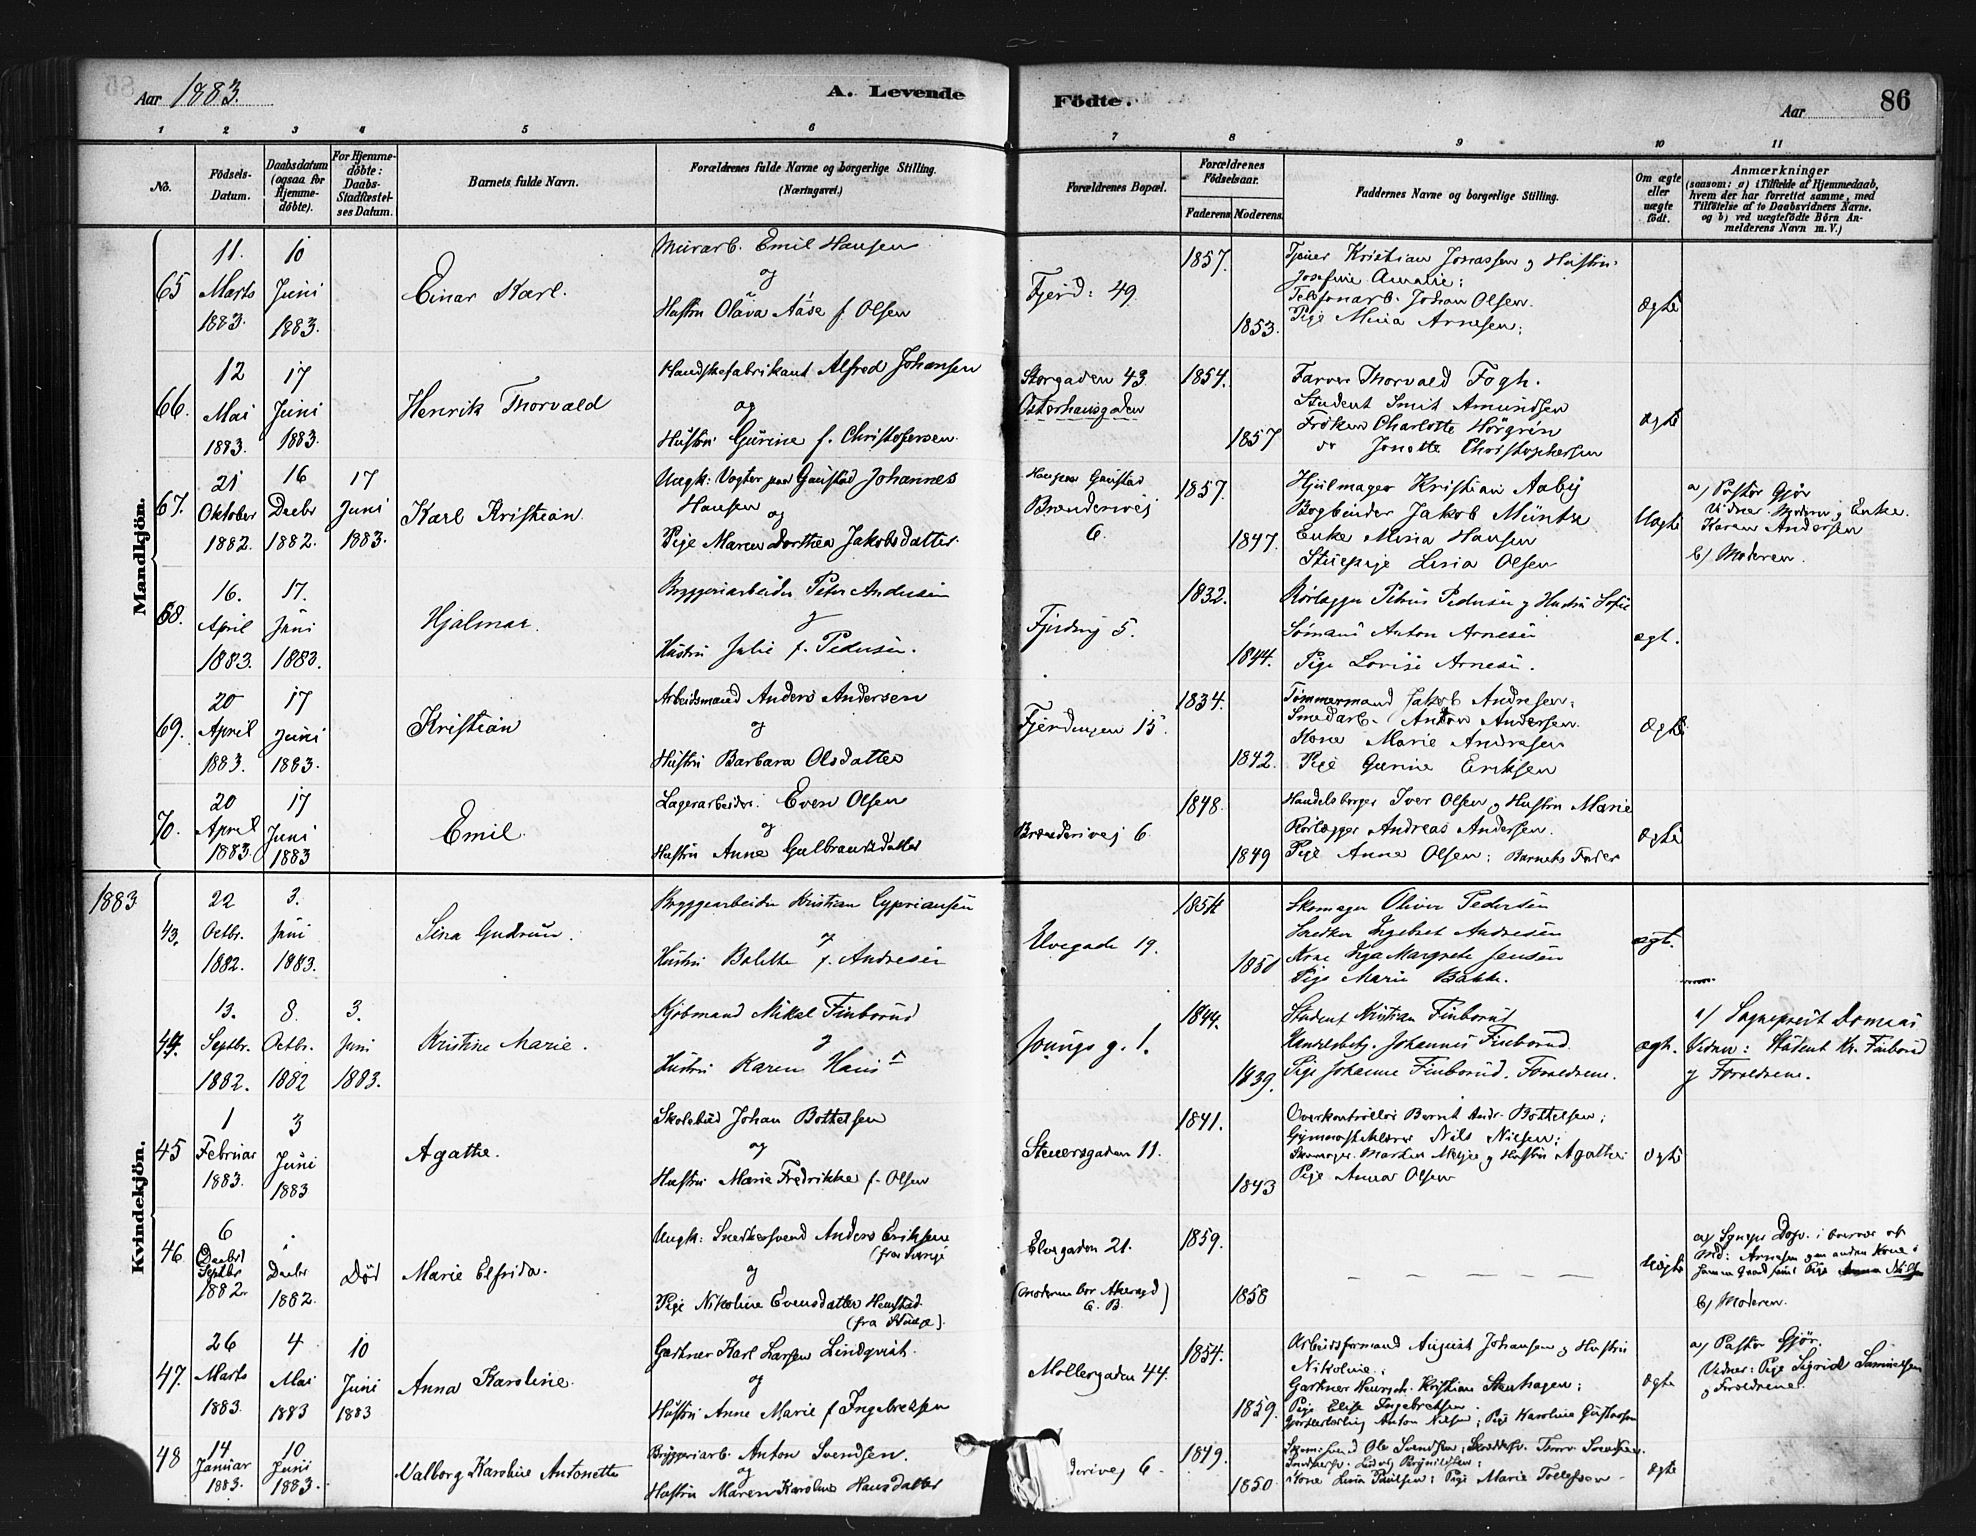 Aar 1883.
A. Levende
Födte.
Aar
86
1 2 3 4 5 6 7 8 9 10 11
No.
Födsels-Datum.
Daabsdatum (ogsaa for Hjemme-döbte).
For Hjemme-döbte: Daabs-Stadfæstel-ses Datum.
Barnets fulde Navn.
Forældrenes fulde Navne og borgerlige Stilling. (Næringsvei.)
Forældrenes Bopæl.
Forældrenes Födselsaar.
Faderens. Moderens.
Faddernes Navne og borgerlige Stilling.
Om ægte eller uægte födt.
Anmærkninger
(saasom: a) i Tilfælde af Hjemmedaab,
hvem der har forrettet samme, med
Tilföielse af to Daabsvidners Navne.
og b) ved uægtefödte Börn An-
melderens Navn m. V.)
Mandkjön.
65
11. Marts 1883.
10 Juni 1883.
Einar Karl.
Murarb. Emil Hansen
og
Hustru Olava Aase f. Olsen
Fjerd: 49.
1857.
1853.
Tjener Kristian Jonassen og Hustru
Josefine Amalie;
Telefonarb. Johan Olsen.
Pige Mina Arnesen;
Ægte
66.
12 Mai 1883.
17 Juni 1883.
Henrik Thorvald
Handskefabrikant Alfred Johansen
og
Hustru Gurine f. Christofersen.
Storgaden 43
Osterhausgaden
1854.
1857
Farver Thorvald Fogh.
Student Smit Amundsen
Fröken Charlotte Högrén
do Jonette Christophersen
Ægte
67.
21 Oktober 1882.
16 Decbr 1882.
17 Juni 1883.
Karl Kristian
Ungk: Vogter paa Gaustad Johannes
Hansen
og
Pige Maren Dorthea Jakobsdatter.
Gaustad
Brænderivej
6.
1857.
1847.
Hjulmager Kristian Aaby
Bogbinder Jakob Müntze
Enke Mina Hansen
Stuepige Lina Olsen
Uægte
a) Pastor Gjör
Vidner: Moderen og Enke
Karen Andersen
b) Moderen.
68.
16. April 1883.
17. Juni 1883.
Hjalmar.
Bryggeriarbeider Peter Andersen
og
Hustru Julie f. Pedersen.
Fjerding 5.
1832.
1844.
Rörlægger Petrus Pedersen og Hustru Sofie
Sömand Anton Arnesen
Pige Lovise Arnesen.
ægt.
69.
20 April 1883.
17 Juni 1883.
Kristian
Arbeidsmand Anders Andersen
og
Hustru Barbara Olsdatter
Fjerdingen 15.
1834.
1842.
Tömmermand Jakob Andresen;
Smedarb. Anton Andersen.
Kone Marie Andresen
Pige Gurine Eriksen
Ægte
70.
20 April 1883.
17 Juni 1883
Emil
Lagerarbeider. Even Olsen
og
Hustru Anne Gulbrandsdatter
Brænderivej 6.
1848.
1849
Handelsborger Iver Olsen og Hustru Marie
Rörlægger Andreas Andersen.
Pige Anne Olsen; Barnets Fader
Ægte
1883
Kvindekjön.
43.
22 Octbr. 1882.
3. Juni 1883.
Sina Gudrun.
Bryggearbeider Kristian Cypriansen
og
Hustru Bolette f. Andresen
Elvegade 19.
1854
1850
Skomager Oliver Pedersen
Snedker Ingebret Andresen
Kone Inga Margrete Jensen
Pige Marie Bakke.
ægt.
44.
13. Septbr. 1882.
8. Octbr. 1882
3. Juni 1883.
Kristine Marie.
Kjöbmand Mikal Finborud
og
Hustru Karen Hans
Youngs g. 1.
1844.
1839.
Student Kristian Finborud
Handelsbetj. Johannes Finborud
Pige Johanne Finborud. Forældrene.
ægt.
a) Sogneprest Domaas
Vidner: Student Kr. Finborud
og Forældrene.
45
1 Februar 1883.
3 Juni 1883
Agathe.
Skolebud Johan Bottelsen
og
Hustru Marie Fredrikke f. Olsen
Stenersgaden 11.
1841.
1843
Overkontrollör Bernt Andr. Bottelsen;
Gymnastiklærer Nils Nielsen;
Skomager. Morten Meyer og Hustru Agathe;
Pige Anna Olsen
Ægte
46
6 Decbr Septbr 1882.
Decbr 1882.
Död
Marie Elfrida.
Ungk: Snedkersvend Anders Eriksen
(fra Sverige
og
Pige Nikoline Evensdatter Hemstad.
(fra Stange).
Elvegaden 21.
(Moderen bor Akersgd
6. B.)
1859.
1858
Uægte
b) Moderen.
47.
26 Marts 1883.
4 Mai 1883
10 Juni 1883
Anna Karoline.
Gartner Karl Larsen Lindqvist.
og
Hustru Anne Marie f Ingebretsen
Möllergaden 44.
1854.
1859.
Arbeidsformand August Johansen og Hustru
Nikoline;
Gartner Heinrich Kristian Stenhagen;
Pige Elise Ingebretsen.
Anton Nilsen; Pige Karoline Gustavsen
Ægte
a) Pastor Gjör.
Vidner: Pige Sigrid Samuelsen
og Forældrene.
48
14 Januar 1883.
10 Juni 1883.
Valborg Karoline Antonette
Bryggeriarb. Anton Svendsen.
og
Hustru Maren Karoline Hansdatter
derivej 6.
1849.
1850.
Ole Svendsen; Thorv. Svendsen.
Kone Lina Paulsen; Pige Marie Tollefsen
Ægte